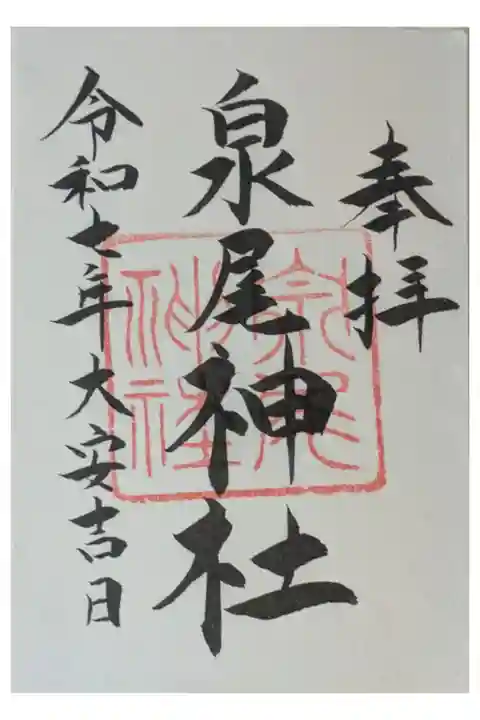 奉拝
泉尾神社
令和七年 大安吉日